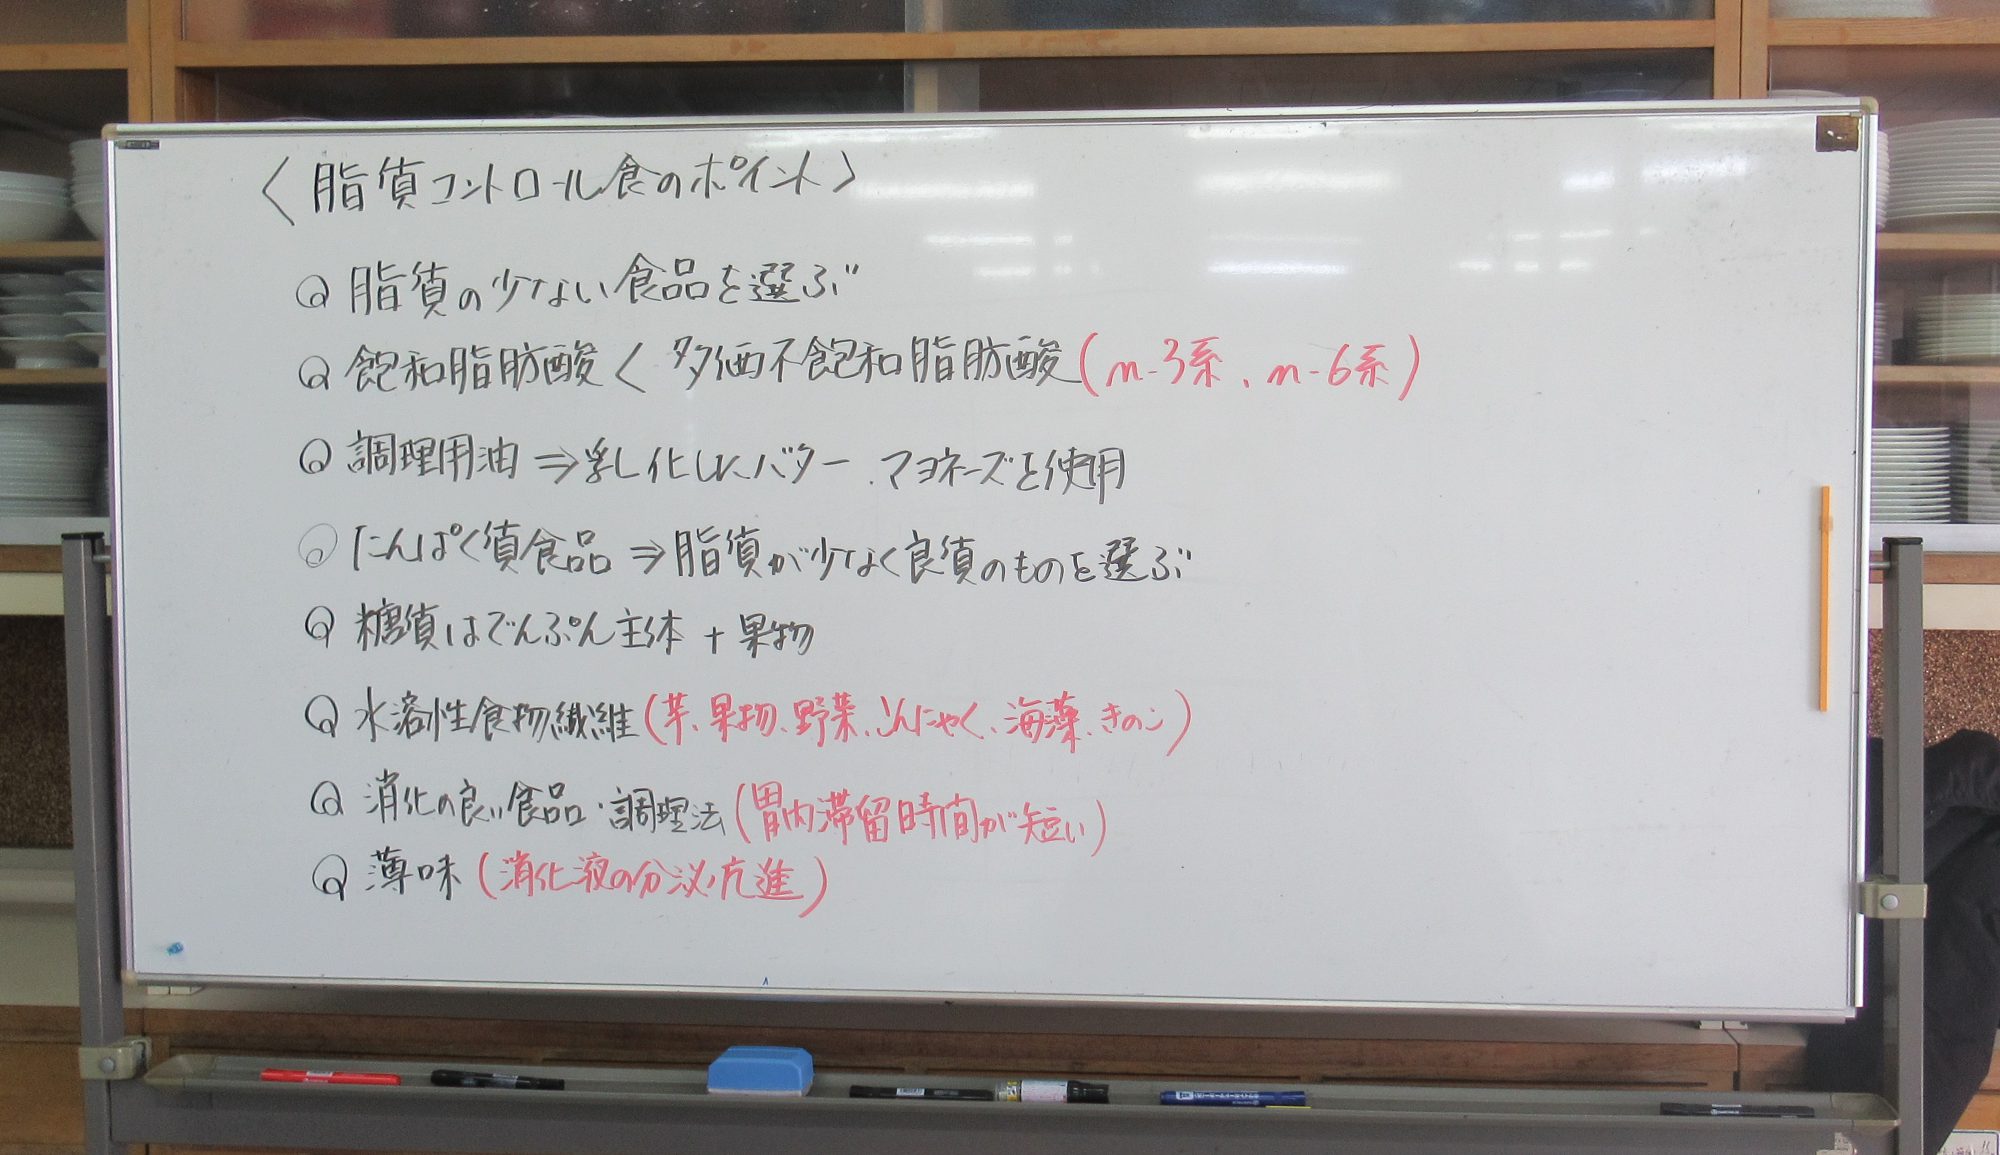 〈脂質コントロール食のポイント〉
脂質の少ない食品を選ぶ
飽和脂肪酸 < 多価不飽和脂肪酸(n-3系、n-6系)
調理用油⇒乳化したバター、マヨネーズを使用
たんぱく質食品⇒脂質が少なく良質のものを選ぶ
糖質はでんぷん主体+果物
水溶性食物繊維(芋、果物、野菜、こんにゃく、海藻、きのこ)
消化の良い食品・調理法(胃内滞留時間が短い)
薄味(消化液の分泌亢進)